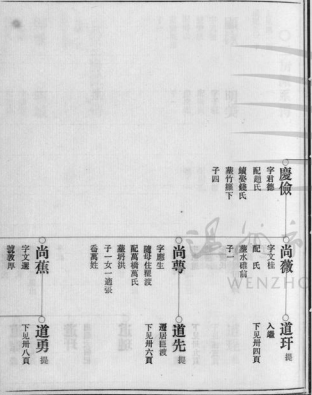 慶儉
字君德
配趙氏
續娶錢氏
葬竹線下
子四
尚薇
字文桂
配 氏
葬水碓翁
子一
道玕 提
入繼
下見卅四頁
尚蕚
字應生
隨母住程波
配萬橋萬氏
葬蚜洪
子一女一適張
岙萬姓
道先 提
遷居程波
下見卅六頁
尚蕉
字文選
號敦厚
道勇 提
下見卅八頁
WENZHO